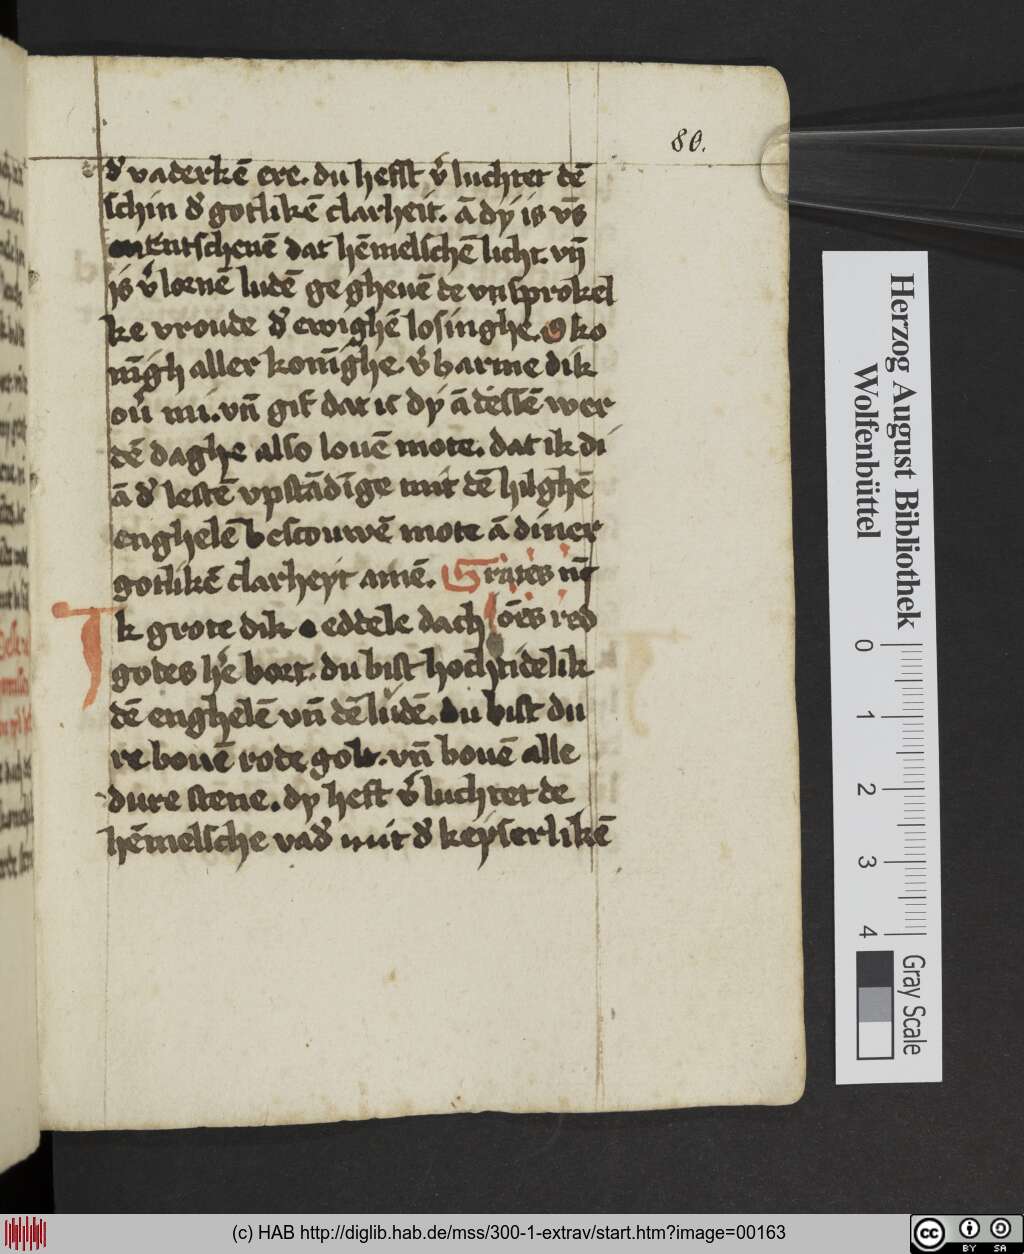 80.
d' vaderkē ere. du hefst v'luchtet dē
schin d' gotlikē clarheit. ā dy is vs̄
entscheuē dat hēmelschē licht. vn̄
is v'loenē ludē ge gheuē de vnsprokel
ke vroude d' ewighē losinghe. O ko
nīgh aller konīghe. v'barme dik
ou' mi. vn̄ gif dat ic dy ā dessē wer
dē daghe also louē mote. dat ik di
ā d' lestē vpstādīge mit dē hilghē
enghelē bescouwē mote ā diner
gotlikē clarheyt amē.
Ik grote dik eddele dach oēs red
godes h'e boet. du bist hochtidelik
dē enghelē vn̄ dē ludē. du bist du
re bouē rode golt. vn̄ bouē alle
dure stene. dy heft v'luchtet de
hēmelsche vad' mit d' keyserlikē
Herzog August Bibliothek
Wolfenbüttel
0 1 2 3 4
Gray Scale
(c) HAB http://diglib.hab.de/mss/300-1-extrav/start.htm?image=00163
cc BY SA